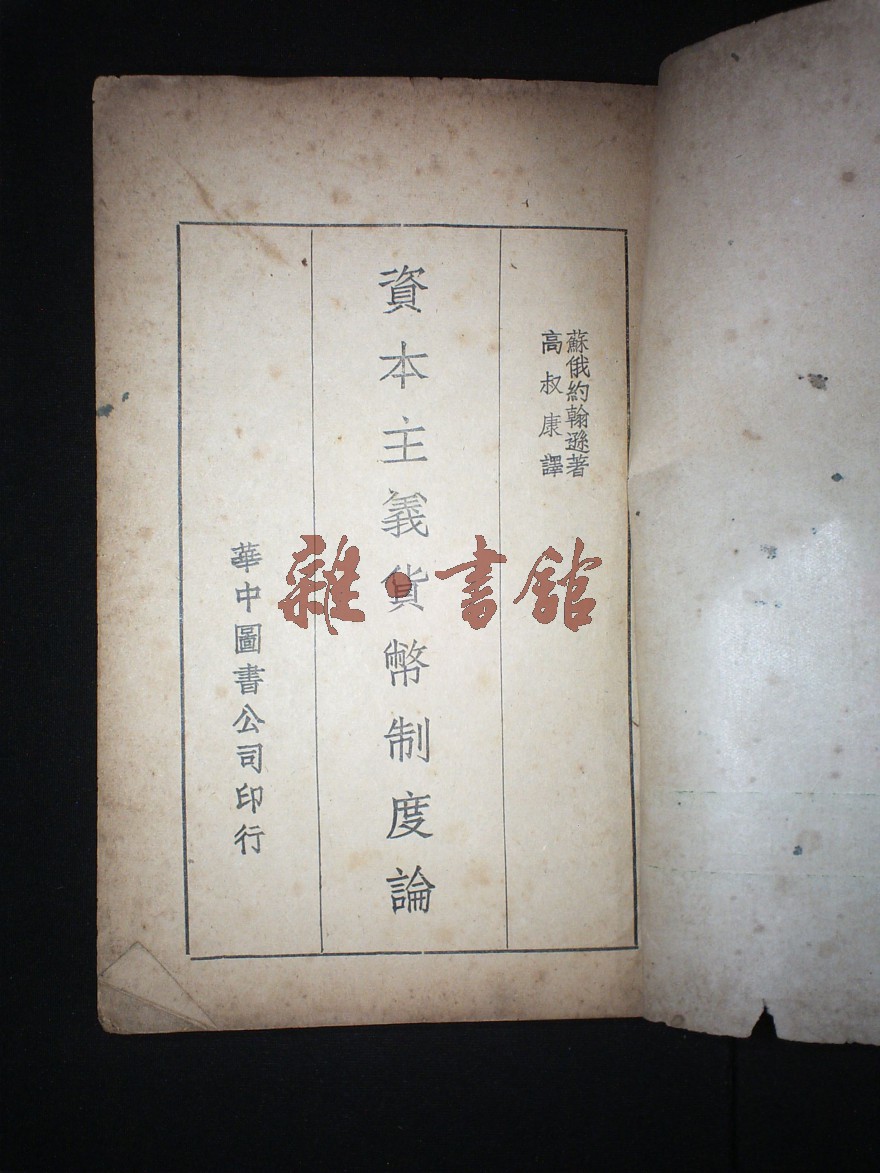 蘇俄約翰遜著
高叔康譯
資本主義貨幣制度論
華中圖書公司印行
雜·書館